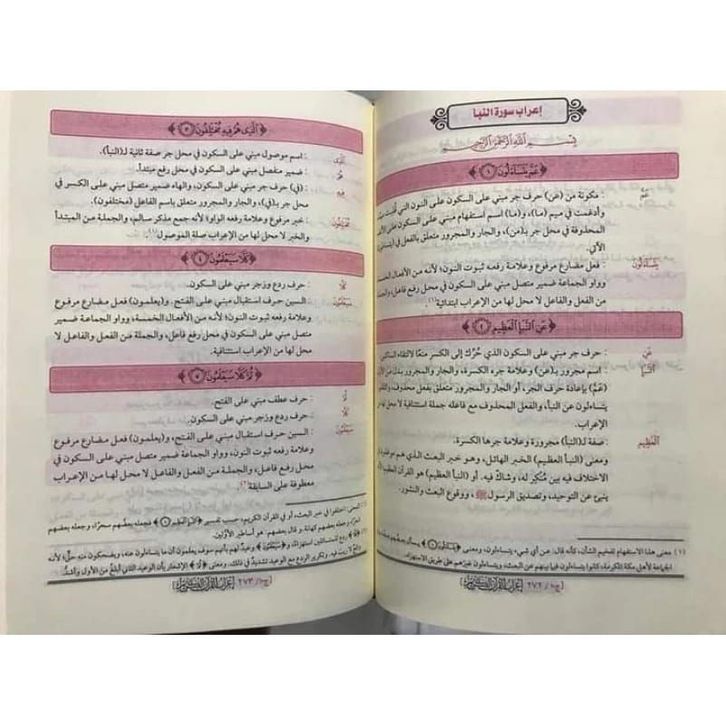 إعراب سورة النبأ
بِسْمِ اللَّهِ الرَّحْمَنِ الرَّحِيمِ
﴿ عَمَّ يَتَسَاءَلُونَ ١ ﴾
عَمَّ : مكونة من (عن) حرف جر مبني على السكون على النون التي قلبت
وأدغمت في ميم (ما)، و(ما): اسم استفهام مبني على السكون على
المحذوفة في محل جر بـ(من)، والجار والمجرور متعلق بالفعل في
الآتي.
يَتَسَاءَلُونَ : فعل مضارع مرفوع وعلامة رفعه ثبوت النون؛ لأنه من الأفعال
وواو الجماعة ضمير متصل مبني على السكون في محل رفع فاعل،
من الفعل والفاعل لا محل لها من الإعراب ابتدائية(١).
﴿ عَنِ النَّبَإِ الْعَظِيمِ ٢ ﴾
عَنِ : حرف جر مبني على السكون الذي حُرِّك إلى الكسر منعًا لالتقاء
النَّبَإِ : اسم مجرور بـ(عن) وعلامة جره الكسرة، والجار والمجرور بدل من
(عَمَّ) بإعادة حرف الجر، أو الجار والمجرور متعلق بفعل محذوف،
يتساءلون عن النبأ، والفعل المحذوف مع فاعله جملة استئنافية لا
الإعراب.
الْعَظِيمِ : صفة لـ(النبأ) مجرورة وعلامة جرها الكسرة.
ومعنى (النبأ العظيم) الخبر الهائل، وهو خبر البعث الذي هم
الاختلاف فيه بين مُنكِر له، وشاك فيه. أو (النبأ العظيم) هو القرآن
ينبئ عن التوحيد، وتصديق الرسول ﷺ، ووقوع البعث والنشور.
(١) معنى هذا الاستفهام تفخيم الشأن، كأنه قال: عن أي شيء يتساءلون، ومعنى ﴿يَتَسَاءَلُونَ﴾ يسأل بعضهم
الجماعة لأهل مكة المكرمة، كانوا يتساءلون فيما بينهم عن البعث، ويتساءلون غيرهم على طريق الاستهزاء.
٢٧٢ / ج١٠ إعراب القرآن الكريم
﴿ الَّذِي هُمْ فِيهِ مُخْتَلِفُونَ ٣ ﴾
الَّذِي : اسم موصول مبني على السكون في محل جر صفة ثانية لـ(النبأ).
هُمْ : ضمير منفصل مبني على السكون في محل رفع مبتدأ.
فِيهِ : (في) حرف جر مبني على السكون، والهاء ضمير متصل مبني على الكسر في
محل جر بـ(في)، والجار والمجرور متعلق باسم الفاعل (مختلفون).
مُخْتَلِفُونَ : خبر مرفوع وعلامة رفعه الواو؛ لأنه جمع مذكر سالم، والجملة من المبتدأ
والخبر لا محل لها من الإعراب صلة الموصول(١).
﴿ كَلَّا سَيَعْلَمُونَ ٤ ﴾
كَلَّا : حرف ردع وزجر مبني على السكون.
سَيَعْلَمُونَ : السين حرف استقبال مبني على الفتح، (ويعلمون) فعل مضارع مرفوع
وعلامة رفعه ثبوت النون؛ لأنه من الأفعال الخمسة، وواو الجماعة ضمير
متصل مبني على السكون في محل رفع فاعل، والجملة من الفعل والفاعل لا
محل لها من الإعراب استئنافية.
﴿ ثُمَّ كَلَّا سَيَعْلَمُونَ ٥ ﴾
ثُمَّ : حرف عطف مبني على الفتح.
كَلَّا : حرف ردع وزجر مبني على السكون.
سَيَعْلَمُونَ : السين حرف استقبال مبني على الفتح، و(يعلمون) فعل مضارع مرفوع
وعلامة رفعه ثبوت النون، وواو الجماعة ضمير متصل مبني على السكون في
محل رفع فاعل، والجملة من الفعل والفاعل لا محل لها من الإعراب
معطوفة على السابقة(٢).
(١) المعنى اختلفوا في خبر البعث، أو في القرآن الكريم، حسب تفسير ﴿النَّبَإِ الْعَظِيمِ﴾ فجعله بعضهم سحرًا، وجعله بعضهم
شعرًا، وجعله بعضهم كهانة، وقال بعضهم: هو أساطير الأولين.
(٢) ردع للمتسائلين استهزاءً، و﴿سَيَعْلَمُونَ﴾ وعيدٌ لهم بأنهم سوف يعلمون أن ما يتساءلون عنه، ويضحكون منه حقٌّ؛ لأنه
واقع لا ريب فيه، وتكرير الردع مع الوعيد تشديدٌ في ذلك، ومعنى ﴿ثُمَّ﴾ الإشعار بأن الوعيد الثاني أبلغ من الأول وأشدُّ.
٢٧٣ / ج١٠ إعراب القرآن الكريم